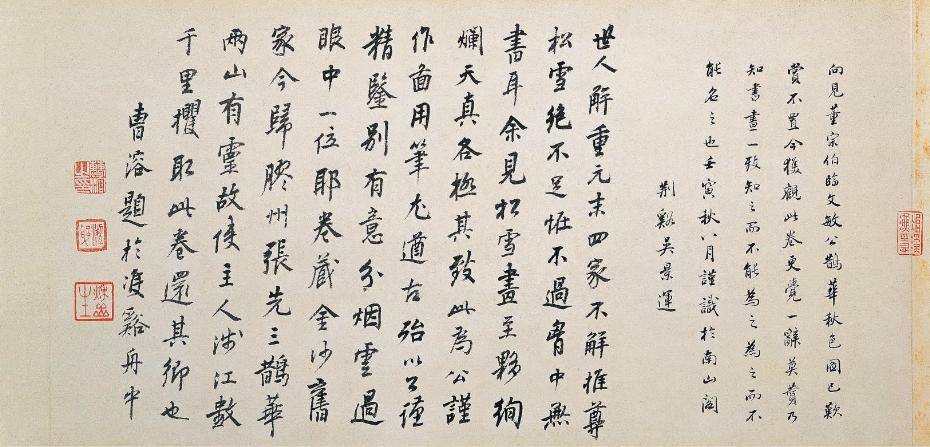 向見董宗伯臨文敏公鵲華秋色圖已歎
賞不置今獲觀此卷更覺一辭莫贊乃
知書畫一致知之而不能為之為之而不
能名之也壬寅秋八月謹識於南山閣
荆谿吳景運
世人解重元末四家不解推尊
松雪絕不足怪不過胷中無
書耳余見松雪畫至夥絢
爛天真各極其致此為公謹
作畵用筆尤遒古殆以公謹
精鑒別有意分烟雲過
眼中一位耶卷藏金沙舊
家今歸膠州張先三鵲華
兩山有靈故使主人涉江數
千里攫取此卷還其鄉也
曹溶題於雙谿舟中